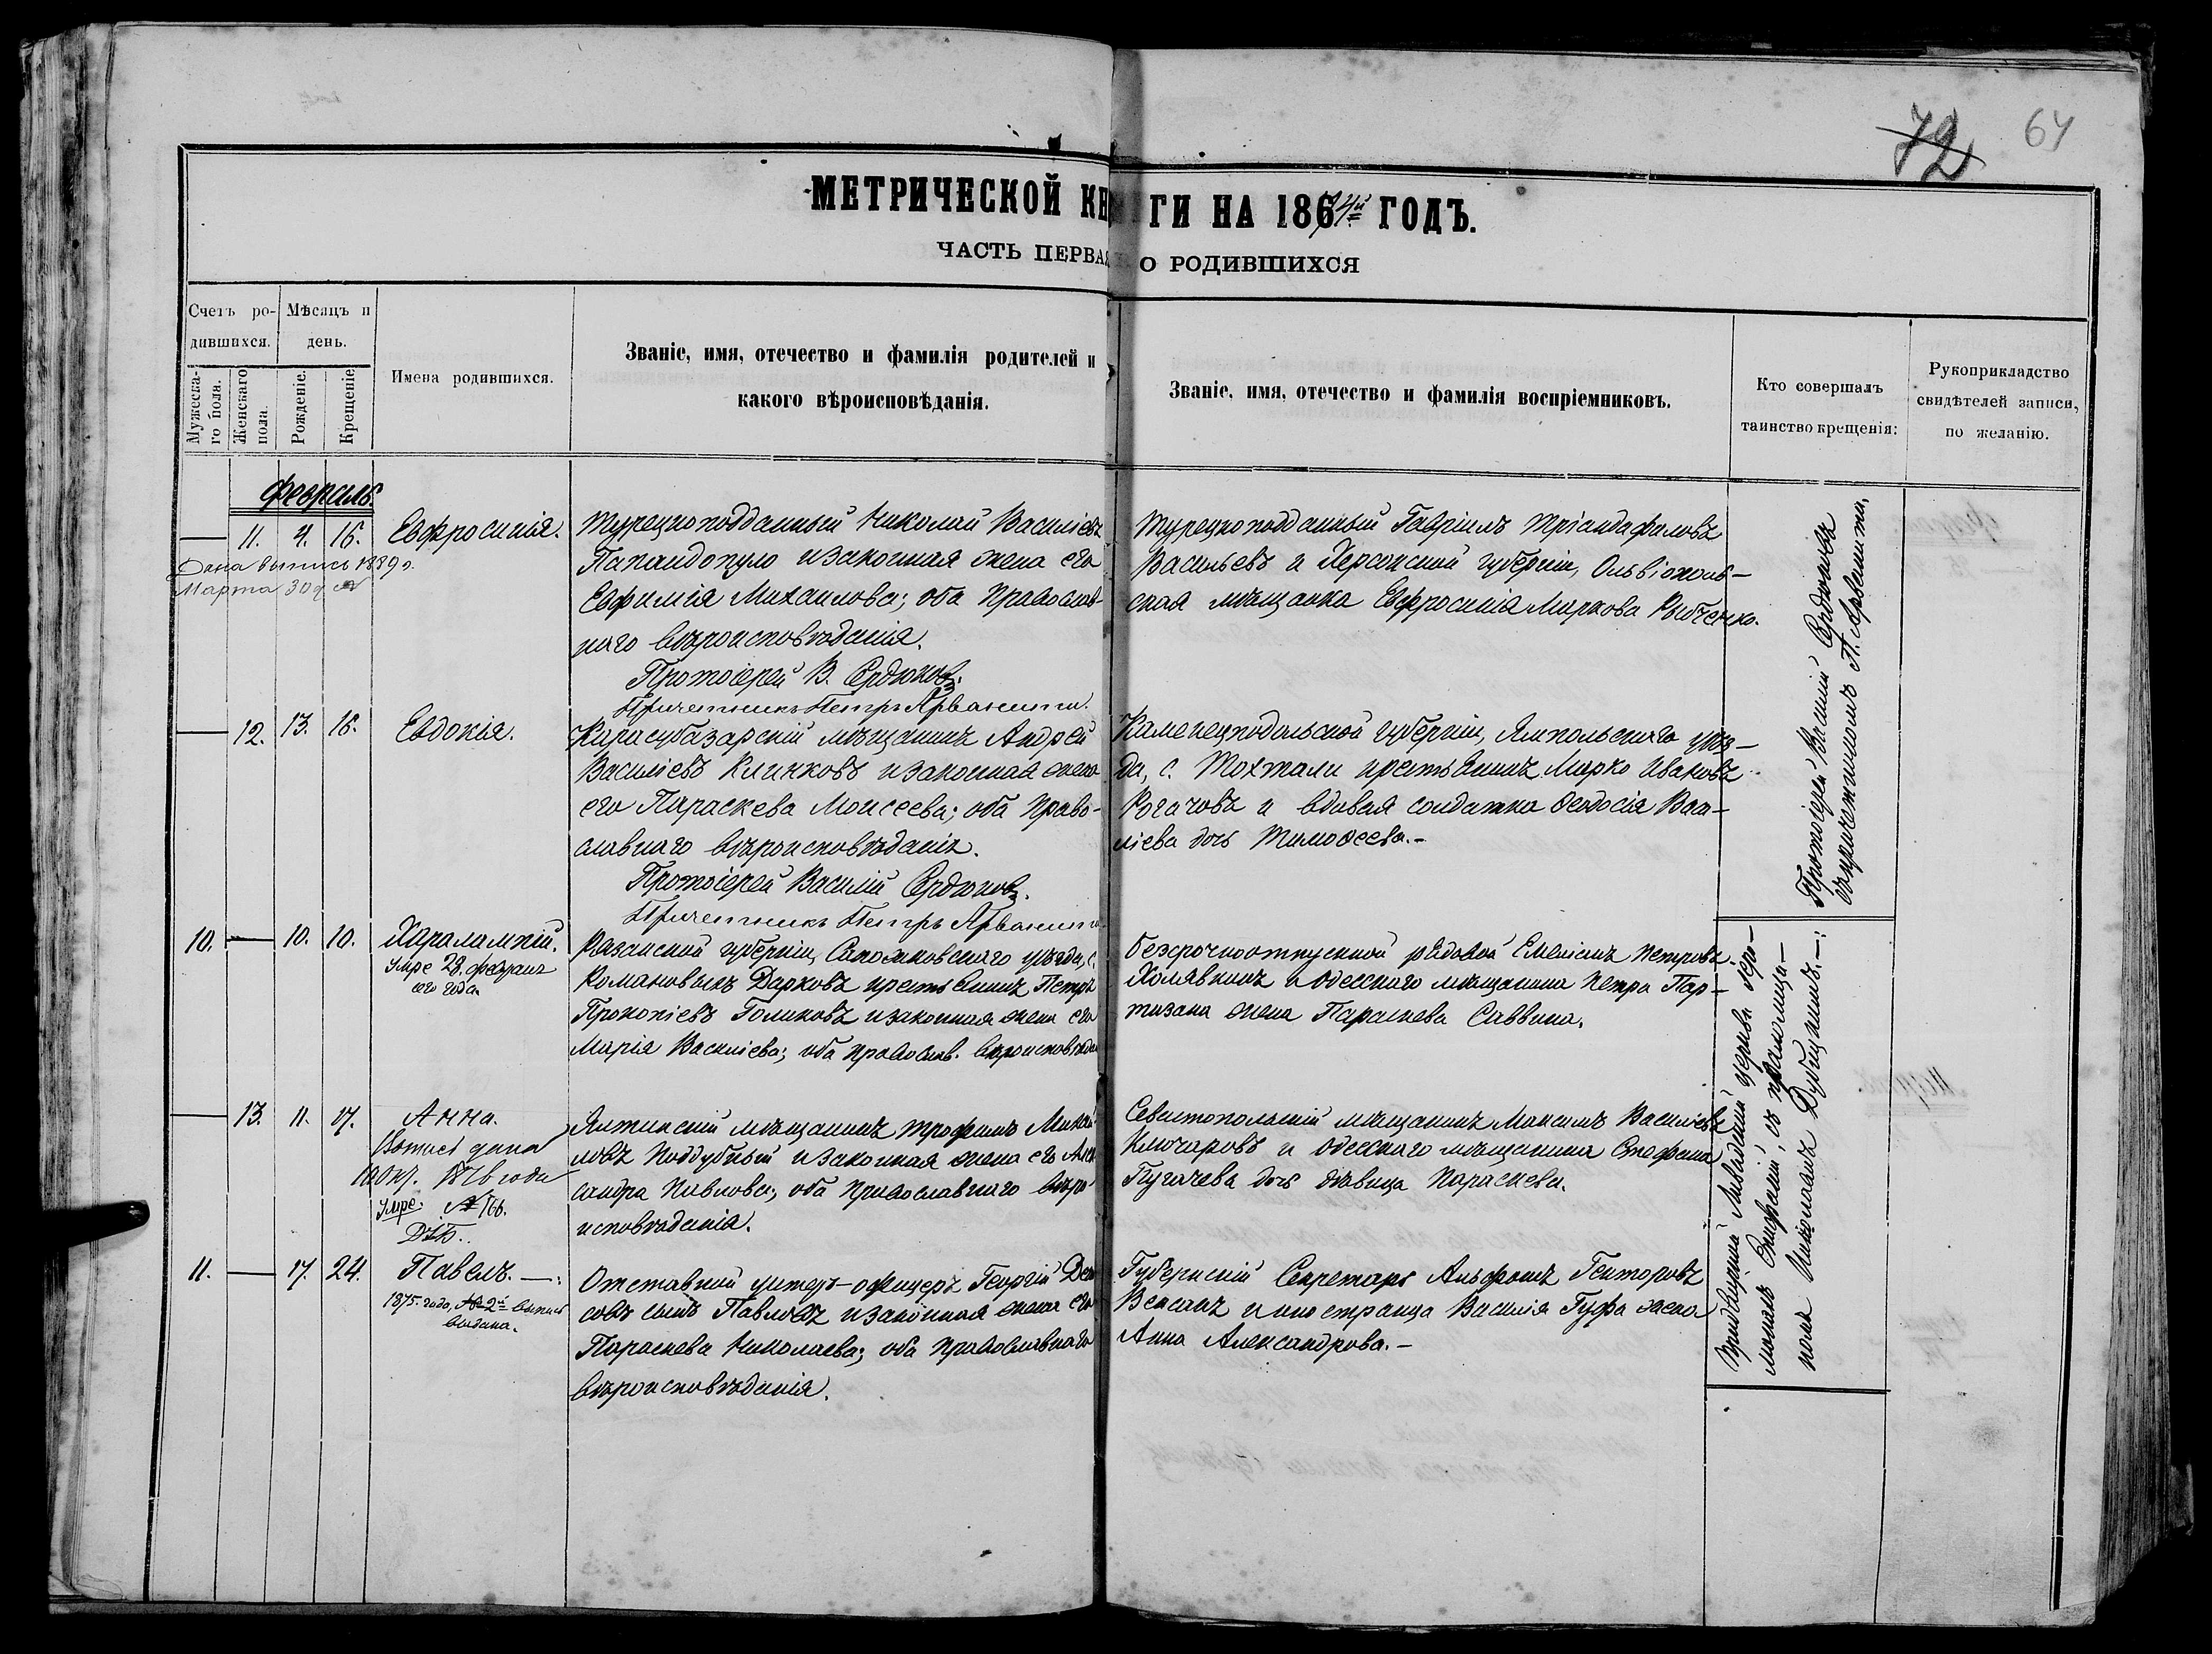 72 64
МЕТРИЧЕСКОЙ КНИГИ НА 1874й ГОДЪ.
ЧАСТЬ ПЕРВАЯ О РОДИВШИХСЯ
Счетъ ро-
дившихся.
Мужеска-
го пола.
Женскаго
пола.
Мѣсяцъ и
день.
Рожденіе.
Крещеніе
Имена родившихся.
Званіе, имя, отечество и фамилія родителей и
какого вѣроисповѣданія.
Званіе, имя, отечество и фамилія воспріемниковъ.
Кто совершалъ
таинство крещенія:
Рукоприкладство
свидѣтелей записи,
по желанію.
Февраль.
11. 4. 16. Евфросинія.
Дана выпись 1889 г.
Марта 30 д
Турецкоподданный Николай Василіевъ
Папандопуло и законная жена его
Евфимія Михаилова; оба православ-
наго вѣроисповѣданія.
Протоіерей В. Сердюковъ.
Причетникъ Петръ Арванити.
Турецкоподданный Гавріилъ Тріандафиловъ
Васильевъ и Херсонской губерніи, Ольвіополь-
ская мѣщанка Евфросинія Маркова Рыбченко.
12. 13. 16. Евдокія.
Карасубазарскій мѣщанинъ Андрей
Василіевъ Клинковъ и законная жена
его Параскева Моисеева; оба право-
славнаго вѣроисповѣданія.
Протоіерей Василій Сердюковъ.
Причетникъ Петръ Арванити
Каменецподольской губерніи, Ямпольскаго уѣз-
да, с. Тохтали крестьянинъ Марко Ивановъ
Рогачовъ и вдовая солдатка Ѳеодосія Васи-
ліева дочь Тимоѳеева.-
Протоіерей Василій Сердюковъ
съ причетникомъ П. Арванити.
10. 10. 10. Харалампій.
Умре 28. февраля
сего года.
Рязанской губерніи, Сапожковскаго уѣзда, с.
Романовыхъ Дарковъ крестьянинъ Петръ
Прокопіевъ Голиковъ и законная жена его
Марія Василіева; оба православ. вѣроисповѣдан
безсрочноотпускной рядовой Емеліанъ Петровъ
Холявкинъ и одесскаго мѣщанина Петра Пар-
тизана жена Параскева Саввина.
13. 11. 17. Анна.
Выпись дана
1876 года
Умре. № 166.
Ялтинскій мѣщанинъ Трофимъ Михаи-
ловъ Поддубный и законная жена его Алек
сандра Павлова; оба православнаго вѣро-
исповѣданія.
Севастопольскій мѣщанинъ Максимъ Василіевъ
Ключаровъ и одесскаго мѣщанина Стефана
Пугачева дочь дѣвица Параскева.
11. 17. 24. Павелъ.
1875 года, № 2й выпись
выдана.
Отставной унтеръ-офицеръ Георгій Дени
совъ сынъ Павловъ и законная жена его
Параскева Николаева; оба православнаго
вѣроисповѣданія.
Губернскій Секретарь Альфонсъ Гекторовъ
Венсанъ и иностранца Василія Гуфа жена
Анна Александрова.-
Придворной Ливадской церкви Іеро-
монахъ Епифаній, съ
Дубицкимъ.